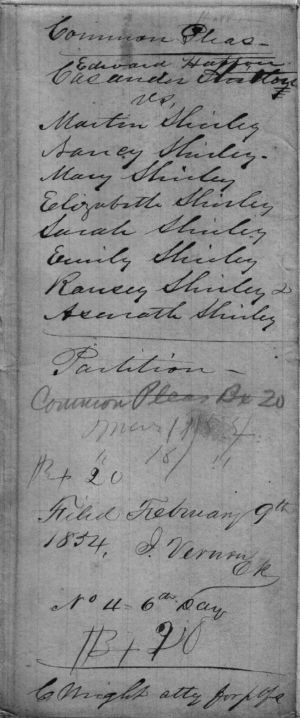 Common Pleas -
Edward
Casander
vs,
Martin Shirley
Nancy Shirley -
Mary Shirley
Elizabeth Shirley
Sarah Shirley
Emily Shirley
Ransey Shirley &
Asenath Shirley
Partition -
Common Pleas Bx 20
Bx 20
Filed February 9th
1854, J. Vernon
Clk
No 4 - 6th Day
Bx 20
C Wright atty for plfs